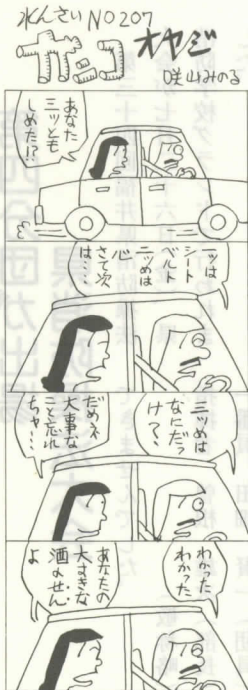 水んさい NO207
ガンコ
オヤジ
咲山みのる
あなた
三ッとも
しめた!?
一ッは
シート
ベルト
二ッめは
心
さて次
は・・・
三ツめは
なにだっ
け?・・
だめネ
大事な
こと忘れ
ちゃ・・
わかった
わかった
あなたの
大すきな
酒のせん
よ